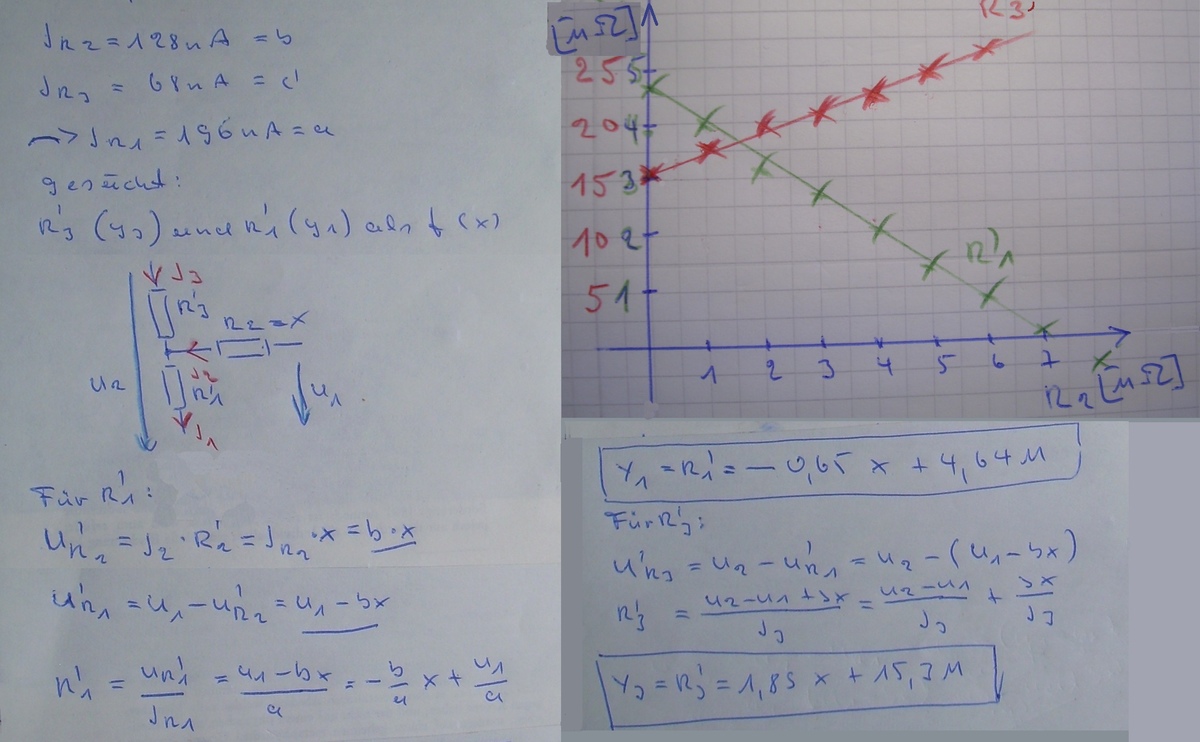 J_R2 = 128nA = b
J_R3 = 68nA = c
→ J_R1 = 196nA = a
gesucht:
R'3 (y3) und R'1 (y1) als f(x)
J3
R'3
R2 = x
J2
U2
R'1
U1
J1
Für R'1:
U'R2 = J2 · R'2 = J_R2 · x = b · x
U'R1 = U1 - U'R2 = U1 - bx
R'1 = UR'1 / J_R1 = (U1 - bx) / a = - b/a x + U1/a
R3'
[MΩ]
25 5
20 4
15 3
10 2
5 1
R'1
1 2 3 4 5 6 7
R2 [MΩ]
Y1 = R1' = - 0,65 x + 4,64 M
Für R'3:
U'R3 = U2 - U'R1 = U2 - (U1 - bx)
R'3 = (U2 - U1 + bx) / J3 = (U2 - U1) / J3 + bx / J3
Y3 = R3' = 1,85 x + 15,3 M